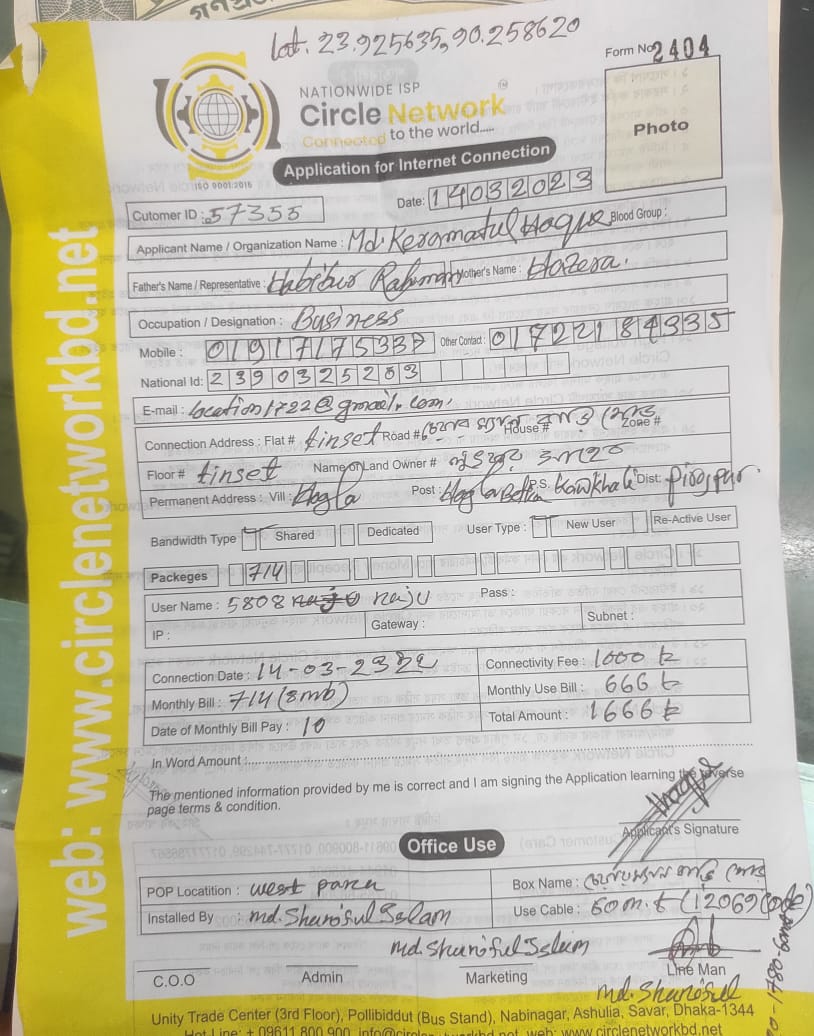 Lat. 23.925635, 90.258620
Form No 2404
NATIONWIDE ISP
Circle Network
Connected to the world.....
Photo
ISO 9001:2015
Application for Internet Connection
Date: 14032023
Cutomer ID : 57355
Applicant Name / Organization Name : Md. Keramatul Haque Blood Group :
Father's Name / Representative : Habibur Rahman Mother's Name : Hazera.
Occupation / Designation : Business
Mobile : 0191717533 Other Contact : 01722184335
National Id: 2390325253
E-mail : location1722@gmail.com.
Connection Address : Flat # tinset Road # House # Zone #
Floor # tinset Name of Land Owner #
Permanent Address : Vill : Hogla Post : Hogla P.S. Kawkhali Dist: Pirojpur.
Bandwidth Type Shared Dedicated User Type : New User Re-Active User
Packeges 714
User Name : 5808 raju Pass :
IP : Gateway : Subnet :
Connection Date : 14-03-23 Connectivity Fee : 1000 tk
Monthly Bill : 714 (8mb) Monthly Use Bill : 666 tk
Date of Monthly Bill Pay : 10 Total Amount : 1666 tk
In Word Amount :
The mentioned information provided by me is correct and I am signing the Application learning the reverse
page terms & condition.
Applicant's Signature
Office Use
POP Locatition : west para Box Name :
Installed By : md. Shariful Islam Use Cable : 60m.t (12069 code)
md. Shariful Islam
C.O.O Admin Marketing Line Man
md. Shariful
Unity Trade Center (3rd Floor), Pollibiddut (Bus Stand), Nabinagar, Ashulia, Savar, Dhaka-1344
web: www.circlenetworkbd.net
web: www.circlenetworkbd.net